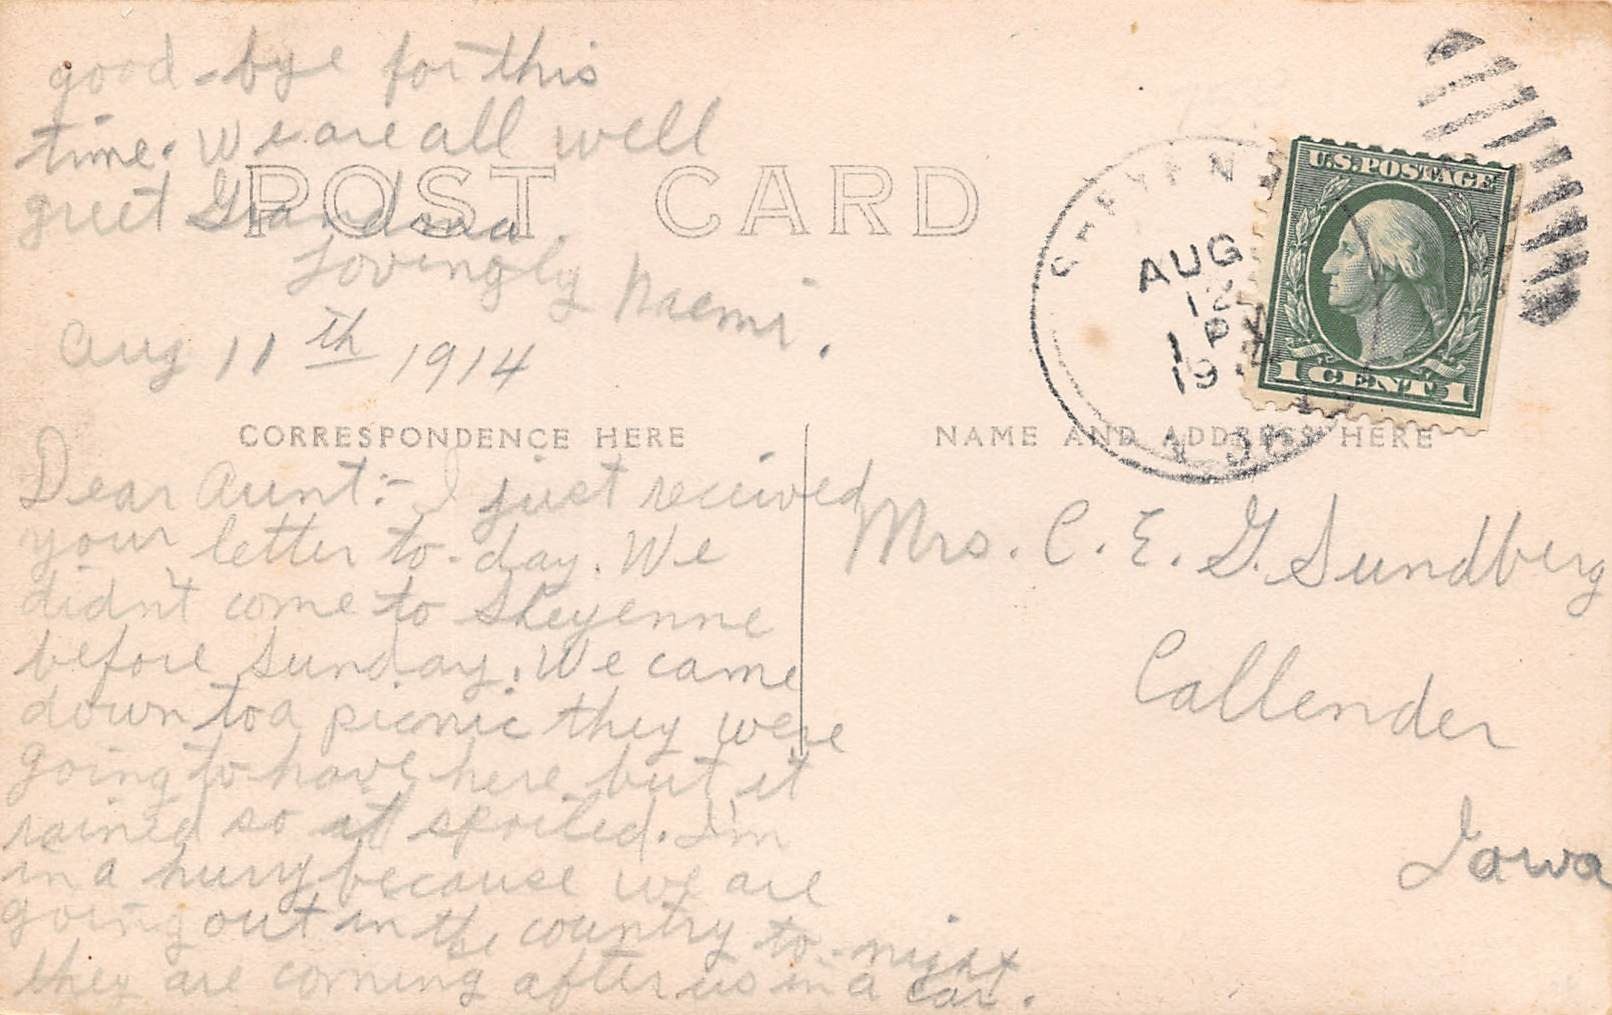 good-bye for this
time. We are all well
greet Grandma.
Lovingly Naemi.
POST CARD
Aug 11th 1914
CORRESPONDENCE HERE
Dear Aunt:- I just received
your letter to-day. We
didn't come to Sheyenne
before Sunday. We came
down to a picnic they were
going to have here but it
rained so it spoiled. I'm
in a hurry because we are
going out in the country to-night
they are coming after us in a car.
AUG
12
1 P
19
U.S. POSTAGE
1 CENT 1
NAME AND ADDRESS HERE
Mrs. C. E. G. Sundberg
Callender
Iowa